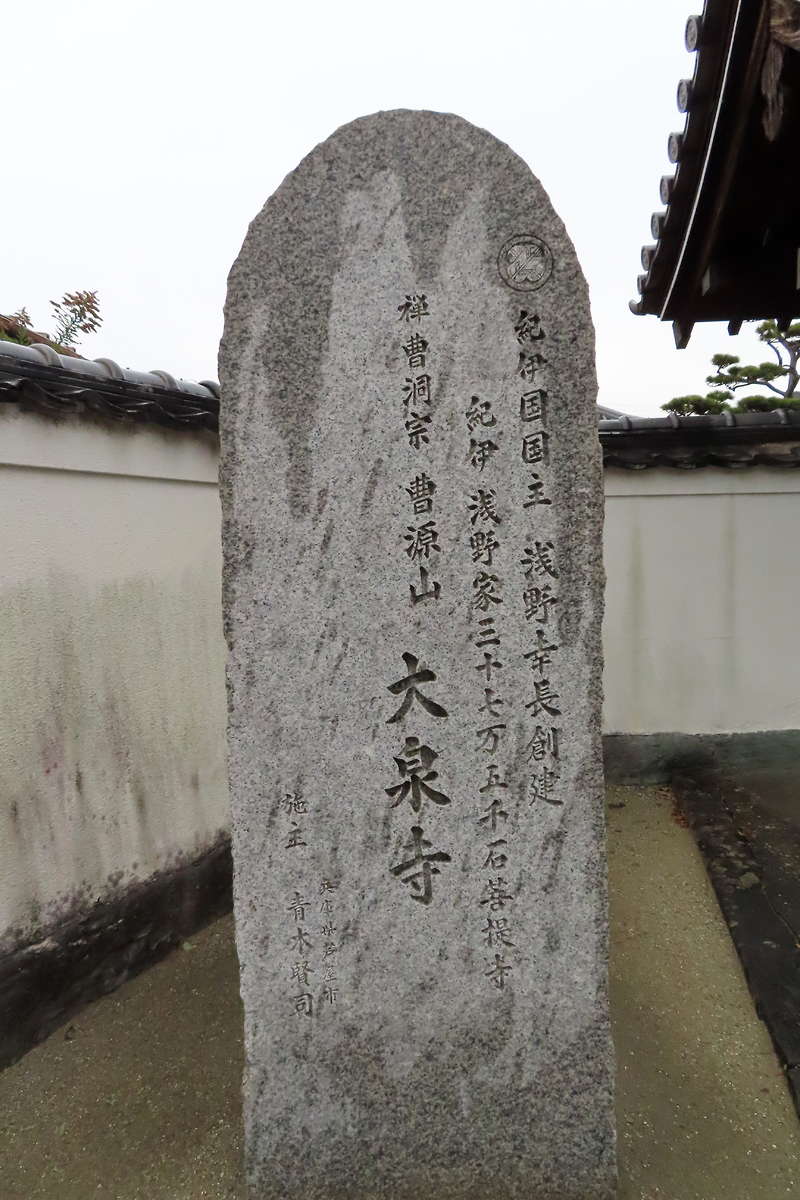 紀伊国国主 浅野幸長創建
紀伊 浅野家三十七万五千石菩提寺
禅曹洞宗 曹源山 大泉寺
兵庫県芦屋市
施主 青木賢司